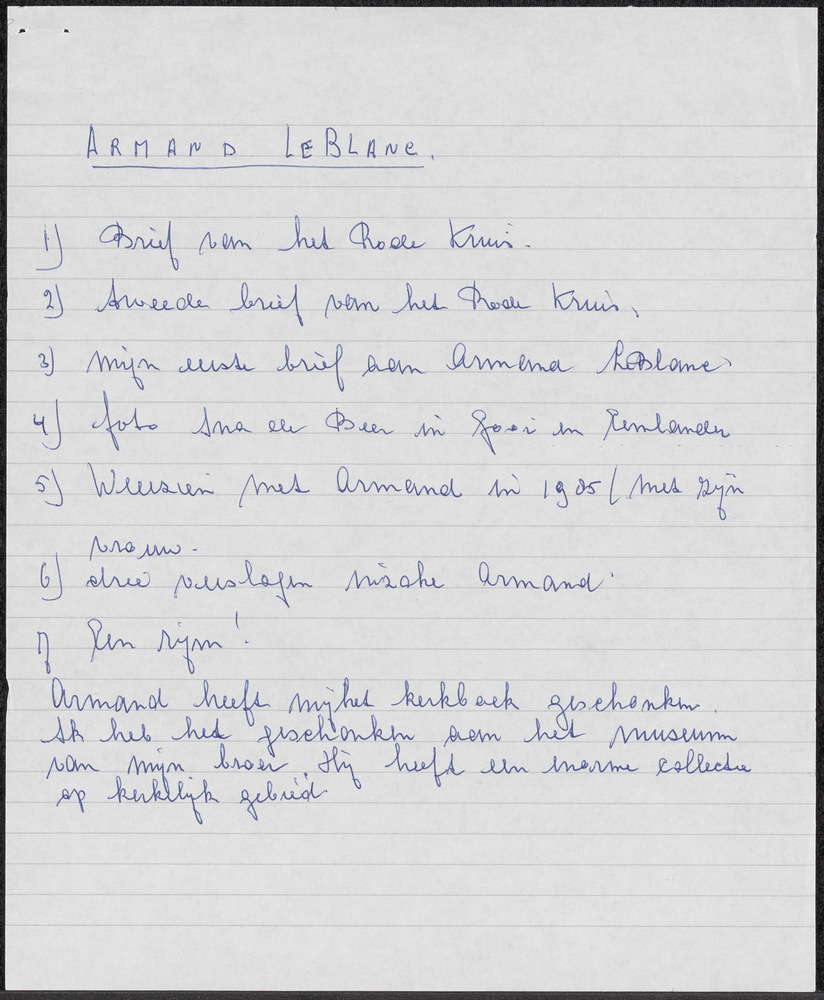 ARMAND LEBLANC.
1) Brief van het Rode Kruis.
2) tweede brief van het Rode Kruis.
3) mijn eerste brief aan Armand LeBlanc
4) foto de Beer in Gooi en Eemlander
5) Weerzien met Armand in 1985 ( met zijn
vrouw.
6) drie verslagen inzake Armand.
7 Een rijm!
Armand heeft mij het kerkboek geschonken.
Ik heb het geschonken aan het museum
van mijn broer. Hij heeft een enorme collectie
op kerkelijk gebied.